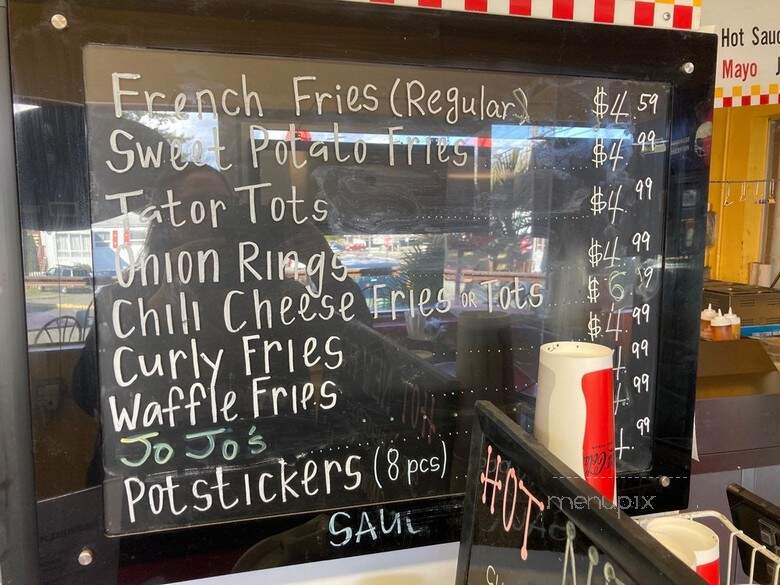 French Fries (Regular) $4.59
Sweet Potato Fries $4.99
Tator Tots $4.99
Onion Rings $4.99
Chili Cheese Fries OR Tots $6
Curly Fries $4.99
Waffle Fries 4.99
Jo Jo's 4.99
Potstickers (8 pcs) 4.99
HOT
Hot Sauc
Mayo
menupix